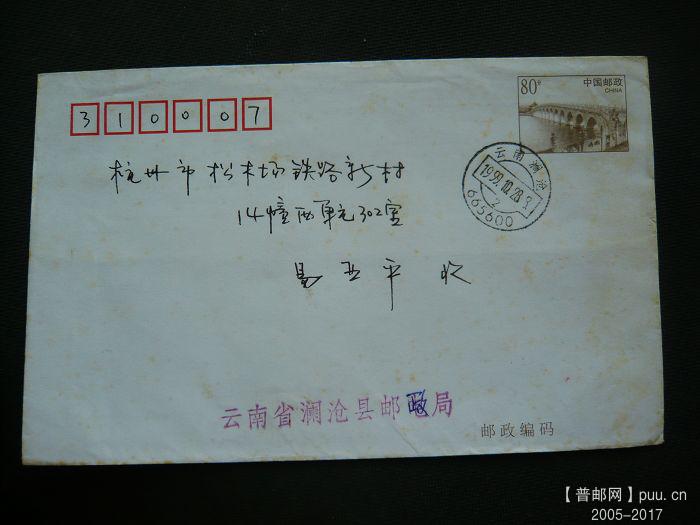 80分
中国邮政
CHINA
310007
云南澜沧
1999.10.28.
2
665600
杭州市松木场铁路新村
14幢西单元302室
易亚平收
云南省澜沧县邮政局
邮政编码
【普邮网】puu.cn
2005-2017